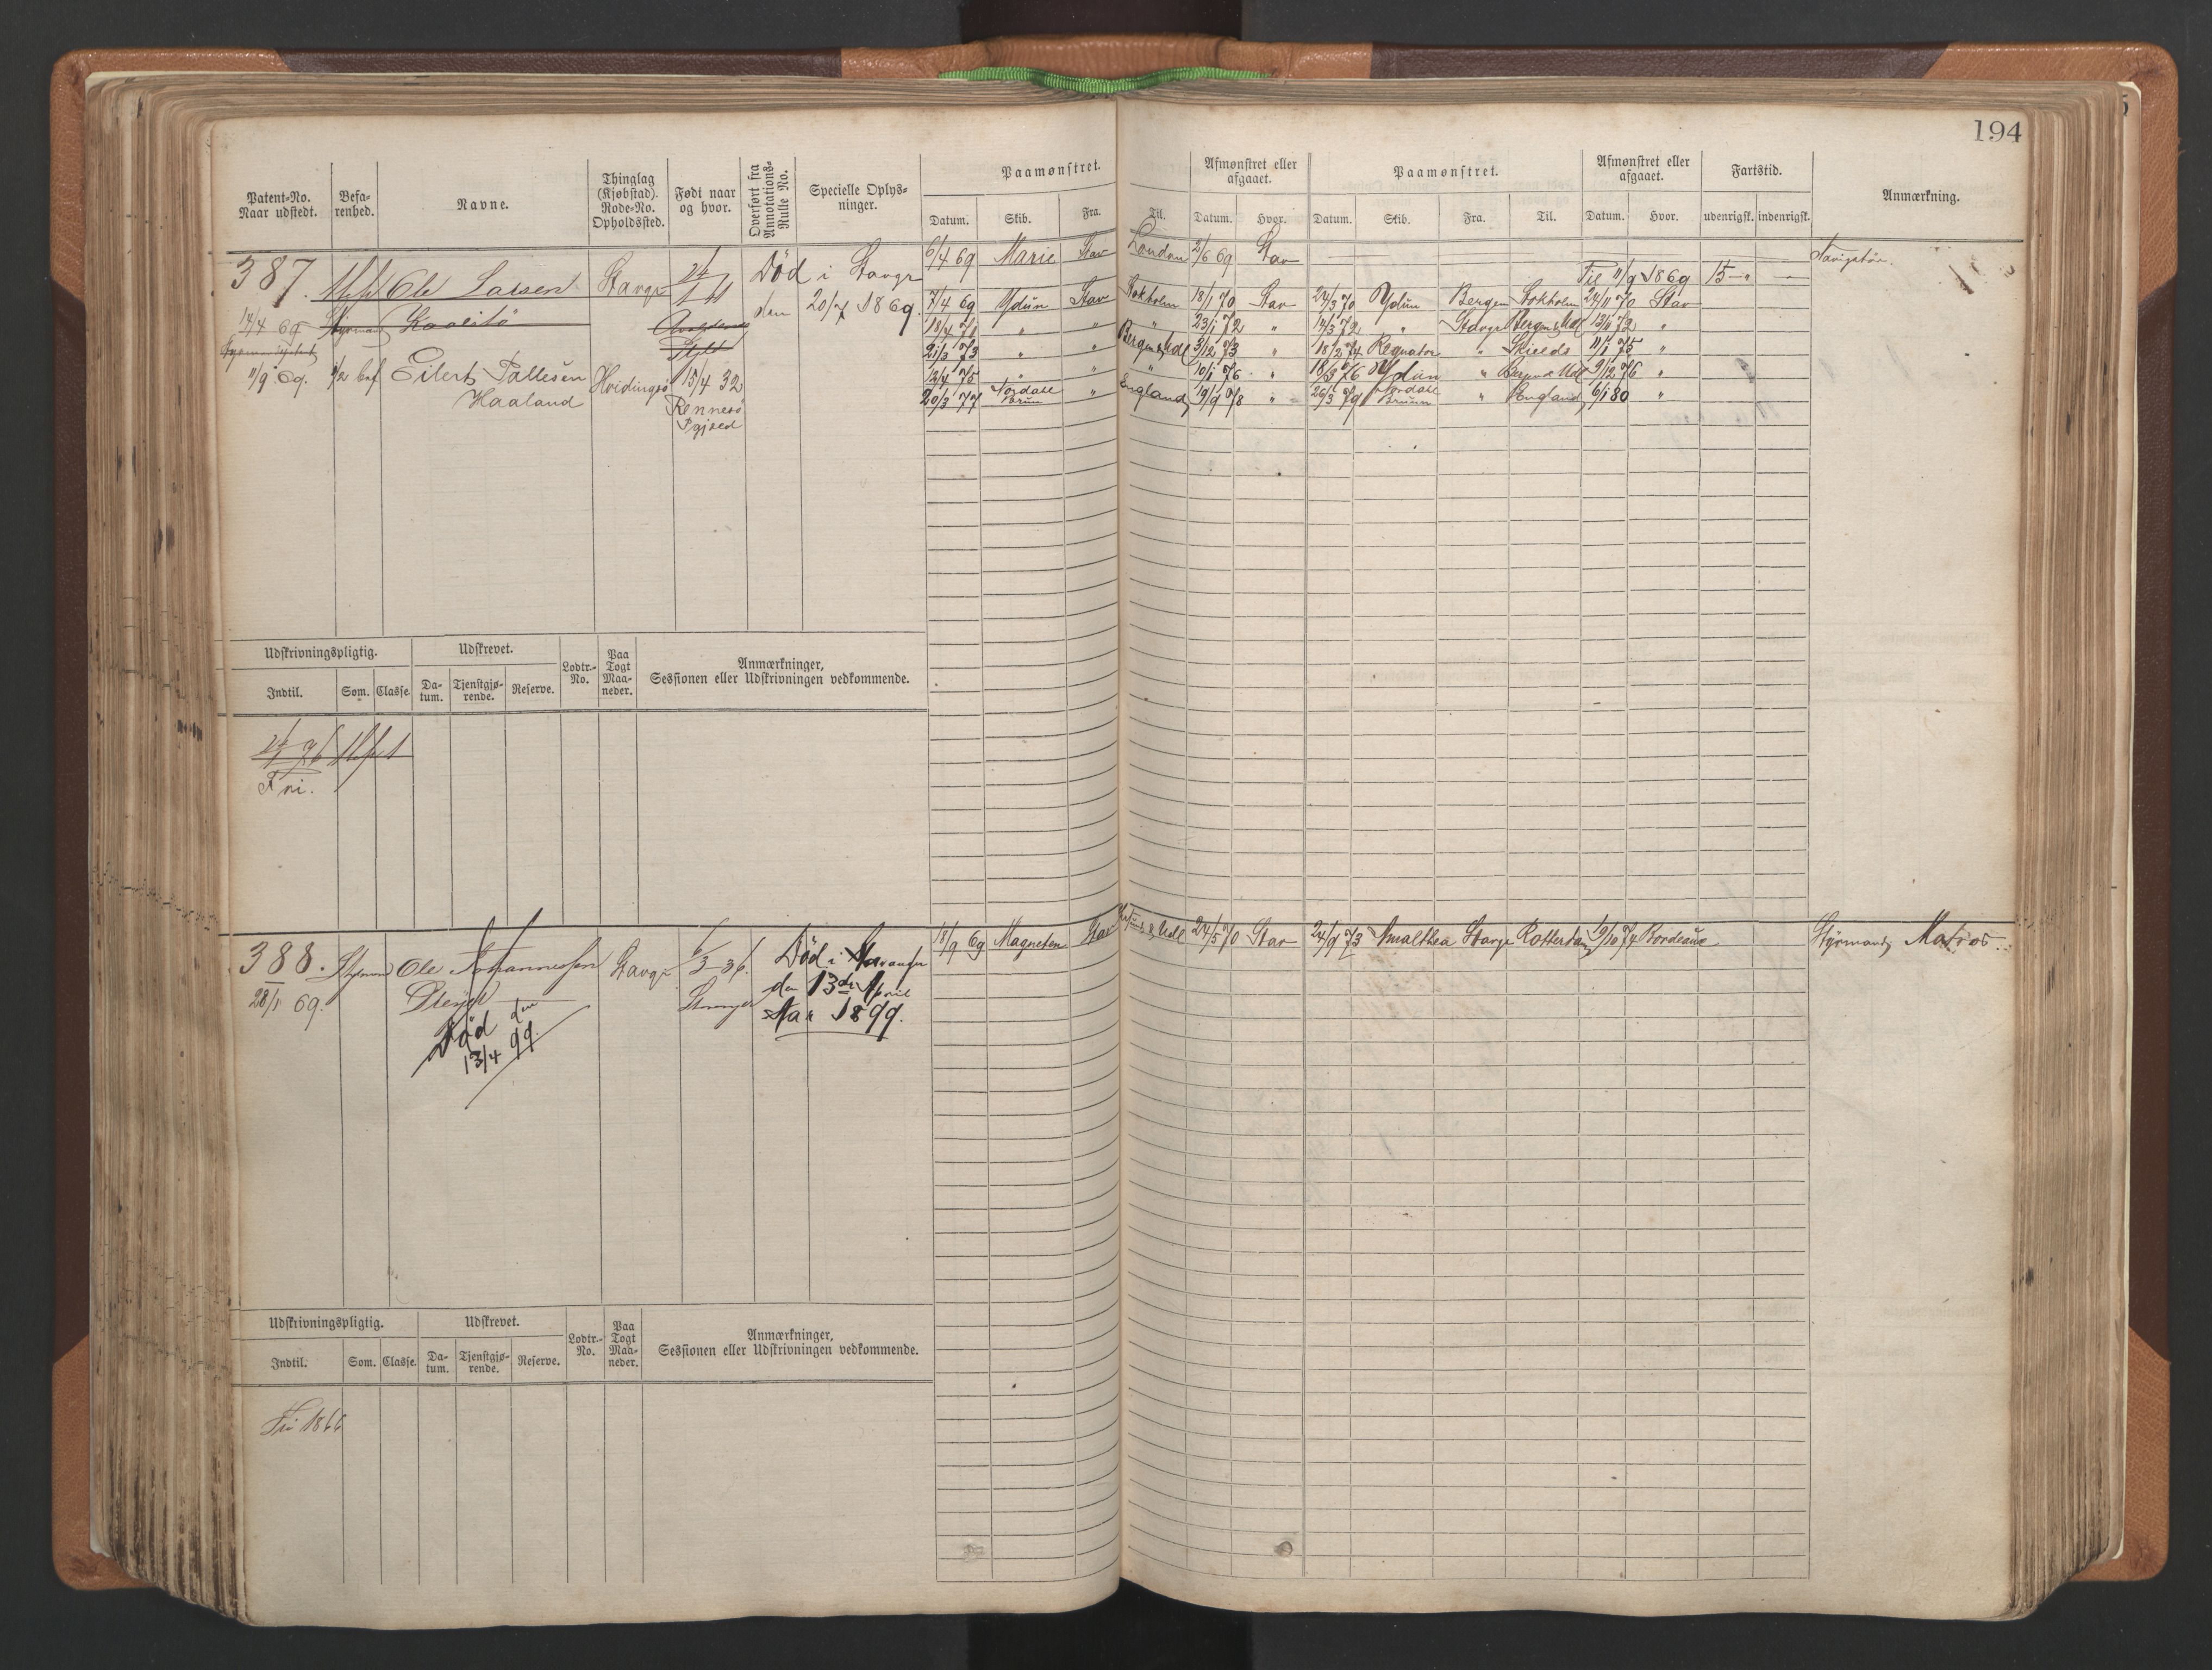 194
Patent-No. Naar udstedt.
Befarenhed.
Navne.
Thinglag (Kjøbstad). Rode-No. Opholdssted.
Født naar og hvor.
Overført fra Annotations-Rulle No.
Specielle Oplysninger.
Paamønstret.
Datum. Skib. Fra. Til.
Afmønstret eller afgaaet.
Datum. Hvor.
Paamønstret.
Datum. Skib. Fra. Til.
Afmønstret eller afgaaet.
Datum. Hvor.
Fartstid.
udenrigsk. indenrigsk.
Anmærkning.
387. Ole Larsen Stavgr Død i Stavgr 6/4 69 Marie Stav London 2/6 69 Stav
den 20/7 1869. Til 11/9 1869 15
7/4 69 Ydun Stav Stokholm 18/1 70 Stav 24/3 70 Ydun Bergen Stokholm 24/11 70 Stav
14/4 69
18/4 71 " " " 23/1 72 " 14/3 72 " Stavgr Bergen & Udl 13/6 72 "
21/3 73 " " Bergen & Udl 3/12 73 " 18/2 74 Regnator " Skields 11/1 75 "
11/9 69. 1/2 bef Eilert Tallesen Hvidingsø 15/4 32 12/4 75 " " " 10/1 76 " 18/3 76 Ydun " Bergen & Udl 9/12 76 "
Haaland Rennesø 20/3 77 Nordahl Brun " England 19/9 78 " 26/3 79 Nordahl Bruun " England 6/1 80 "
Pgjæld
Udskrivningspligtig. Udskrevet. Lodtr.-No. Paa Togt Maaneder. Anmærkninger, Sessionen eller Udskrivningen vedkommende.
Indtil. Som. Classe. Datum. Tjenstgjørende. Reserve.
Fri.
388. Styrmd Ole Johannessen Stavgr 6/3 36. Død i Stavanger 18/9 69 Magneten Stav & Udl 24/5 70 Stav 24/9 73 Amalthea Stavgr Rotterdam 19/10 74 Bordeaux Styrmand, Matros
28/1 69. Stavanger den 13de April
Aar 1899.
Død den
13/4 99.
Udskrivningspligtig. Udskrevet. Lodtr.-No. Paa Togt Maaneder. Anmærkninger, Sessionen eller Udskrivningen vedkommende.
Indtil. Som. Classe. Datum. Tjenstgjørende. Reserve.
Fri 1866